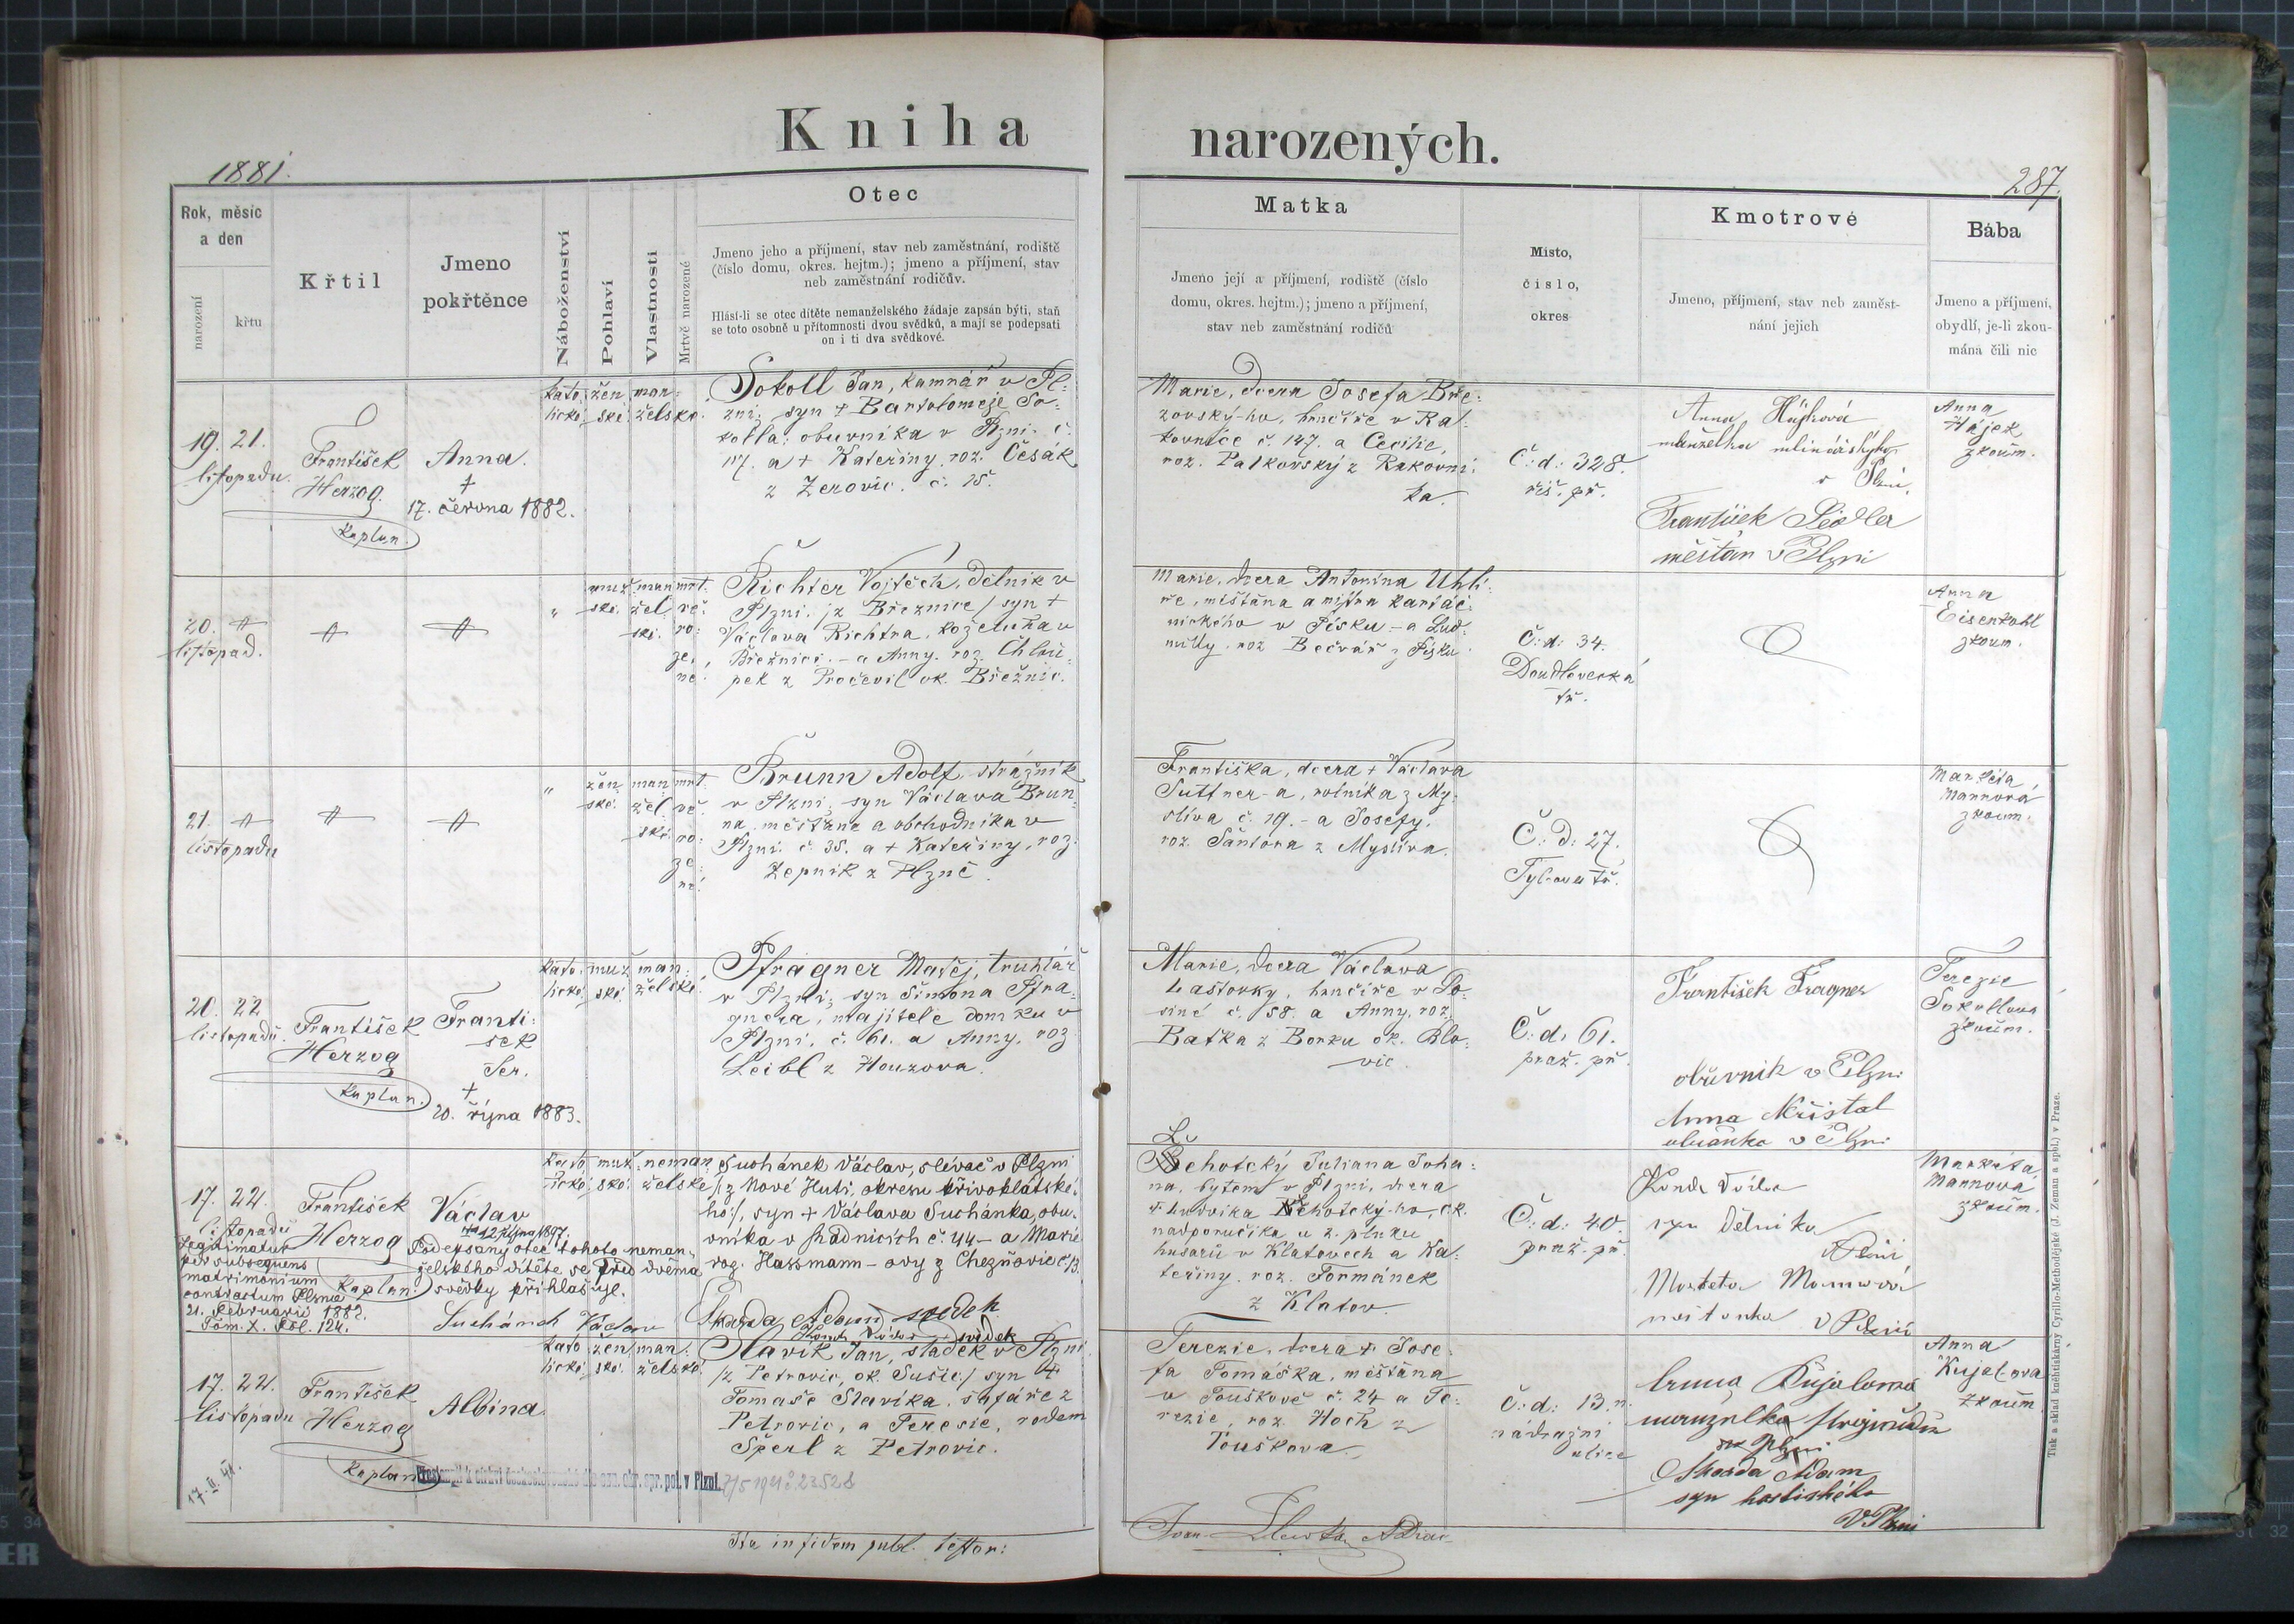 Kniha narozených.
1881.
287.
Rok, měsíc
a den
narození
křtu
Křtil
Jmeno
pokřtěnce
Náboženství
Pohlaví
Vlastnosti
Mrtvě narozené
Otec
Jmeno jeho a příjmení, stav neb zaměstnání, rodiště
(číslo domu, okres. hejtm.); jmeno a příjmení, stav
neb zaměstnání rodičův.
Hlásí-li se otec dítěte nemanželského žádaje zapsán býti, staň
se toto osobně u přítomnosti dvou svědků, a mají se podepsati
on i ti dva svědkové.
Matka
Jmeno její a příjmení, rodiště (číslo
domu, okres. hejtm.); jmeno a příjmení,
stav neb zaměstnání rodičů
Místo,
číslo,
okres
Kmotrové
Jmeno, příjmení, stav neb zaměst-
nání jejich
Bába
Jmeno a příjmení,
obydlí, je-li zkou-
mána čili nic
19. 21.
listopadu.
František
Herzog.
kaplan.
Anna.
†
17. června 1882.
kato: žen man:
lické ské. želské.
Sokoll Jan, kamnář v Pl:
zni; syn † Bartoloměje So-
kolla, obuvníka v Plzni č.
117. a † Kateřiny, roz. Česák
z Žerovic. č. 15.
Marie, dcera Josefa Bře:
zovský-ho, hrnčíře v Ra:
kovníce č. 147. a Cecilie,
roz. Palkovský z Rakovní:
ka.
Č: d: 328.
říš. př.
Anna Hájková
manželka
v Plzni,
František Pědler
měšťan v Plzni
Anna
Hájek
zkoum.
20.
listopad.
"
muž man mrt:
ské. žel vě.
ské. ro:
ze:
né.
Richter Vojtěch, dělník v
Plzni. /z Březnice/ syn †
Václava Richtra, koželuha v
Březnici. – a Anny. roz. Chlou:
pek z Pročevil ok. Březnic.
Marie, dcera Antonína Uhlí:
ře, měštána a mistra kartáč:
nického v Písku – a Lud:
milly. roz Bečvář z Písku.
Č: d: 34.
Doudlevecká
tř.
Anna
Eisenkohl
zkoum.
21.
listopadu
"
žen man mrt:
ské. žel vě.
ské ro:
ze:
né.
Brunn Adolf, strážník
v Plzni, syn Václava Brun:
na, měštana a obchodníka v
Plzni. č. 35. a † Kateřiny, roz.
Žepnik z Plzně.
Františka, dcera † Václava
Suttner-a, rolníka z My:
slíva č. 19. – a Josefy,
roz. Šantora z Myslíva.
Č: d: 27.
Tylova tř.
Markéta
Mannová
zkoum.
20. 22
listopadu.
František
Herzog
kaplan.
Franti:
šek
Ser.
†
20. října 1883.
kato. muž. man:
lické ské. želské.
Pfragner Matěj, truhlář
v Plzni; syn Šimona Pfra:
gnera, majitele domku v
Plzni, č. 61. a Anny. roz.
Leibl z Houzova.
Marie, dcera Václava
Laštovky, hrnčíře v Lo:
siné č. 58. a Anny. roz.
Batka z Borku ok. Blo:
vic.
Č: d: 61.
praž. př.
František Fragner
obuvník v Plzni
Anna Křištal
v Plzni
Terezie
Sokollova
zkoum.
17. 22.
listopadu
Legitimatur
per subsequens
matrimonium
contractum Plsnae
21. Februarii 1882.
Tom. X. Fol. 124.
František
Herzog
kaplan.
Václav
12 října 1897.
kato. muž. neman
lické ské. želské
Suchánek Václav, slévač v Plzni
/z Nové Huti, okresu křivoklátské:
ho/, syn † Václava Suchánka, obu:
vníka v Radnicích č. 44 – a Marie
roz. Hassmann-ovy z Chezňovic č. 13.
Podepsaný otec tohoto neman:
želského dítěte se před dvěma
svědky přihlašuje.
Suchánek Václav
Škarda Adam svědek
svědek
Lehotcký Juliana Joha:
na, bytem v Plzni, dcera
† Ludvíka Lehotcký-ho, c.k.
nadporučíka u 2. pluku
husarů v Klatovech a Ka:
teřiny. roz. Formánek
z Klatov.
Č: d: 40.
praž. př.
syn dělníka
v Plzni
Markéta Mannová
měštanka v Plzni
Markéta
Mannová
zkoum.
17. 22.
listopadu
František
Herzog
kaplan
Albína.
kato žen man:
lické ské. želské.
Slavík Jan, sládek v Plzni
/z Petrovic, ok. Sušic/ syn †
Tomaše Slavíka, šafáře z
Petrovic, a Terezie, rodem
Šperl z Petrovic.
Terezie, dcera † Jose:
fa Tomáška, měštana
v Touškově č. 24 a Te:
rezie, roz. Hoch z
Touškova.
Č: d: 13. n.
nádražní
ulice
Anna Kujalová
manželka
v Plzni
Škarda Adam
syn hostinského
v Plzni
Anna
Kujalova
zkoum
17. II. 41.
v Plzni. 7/5 1921 č 23528
Ita in fidem publ. testor:
Tisk a sklad knihtiskárny Cyrillo-Methodějské (J. Zeman a spol.) v Praze.